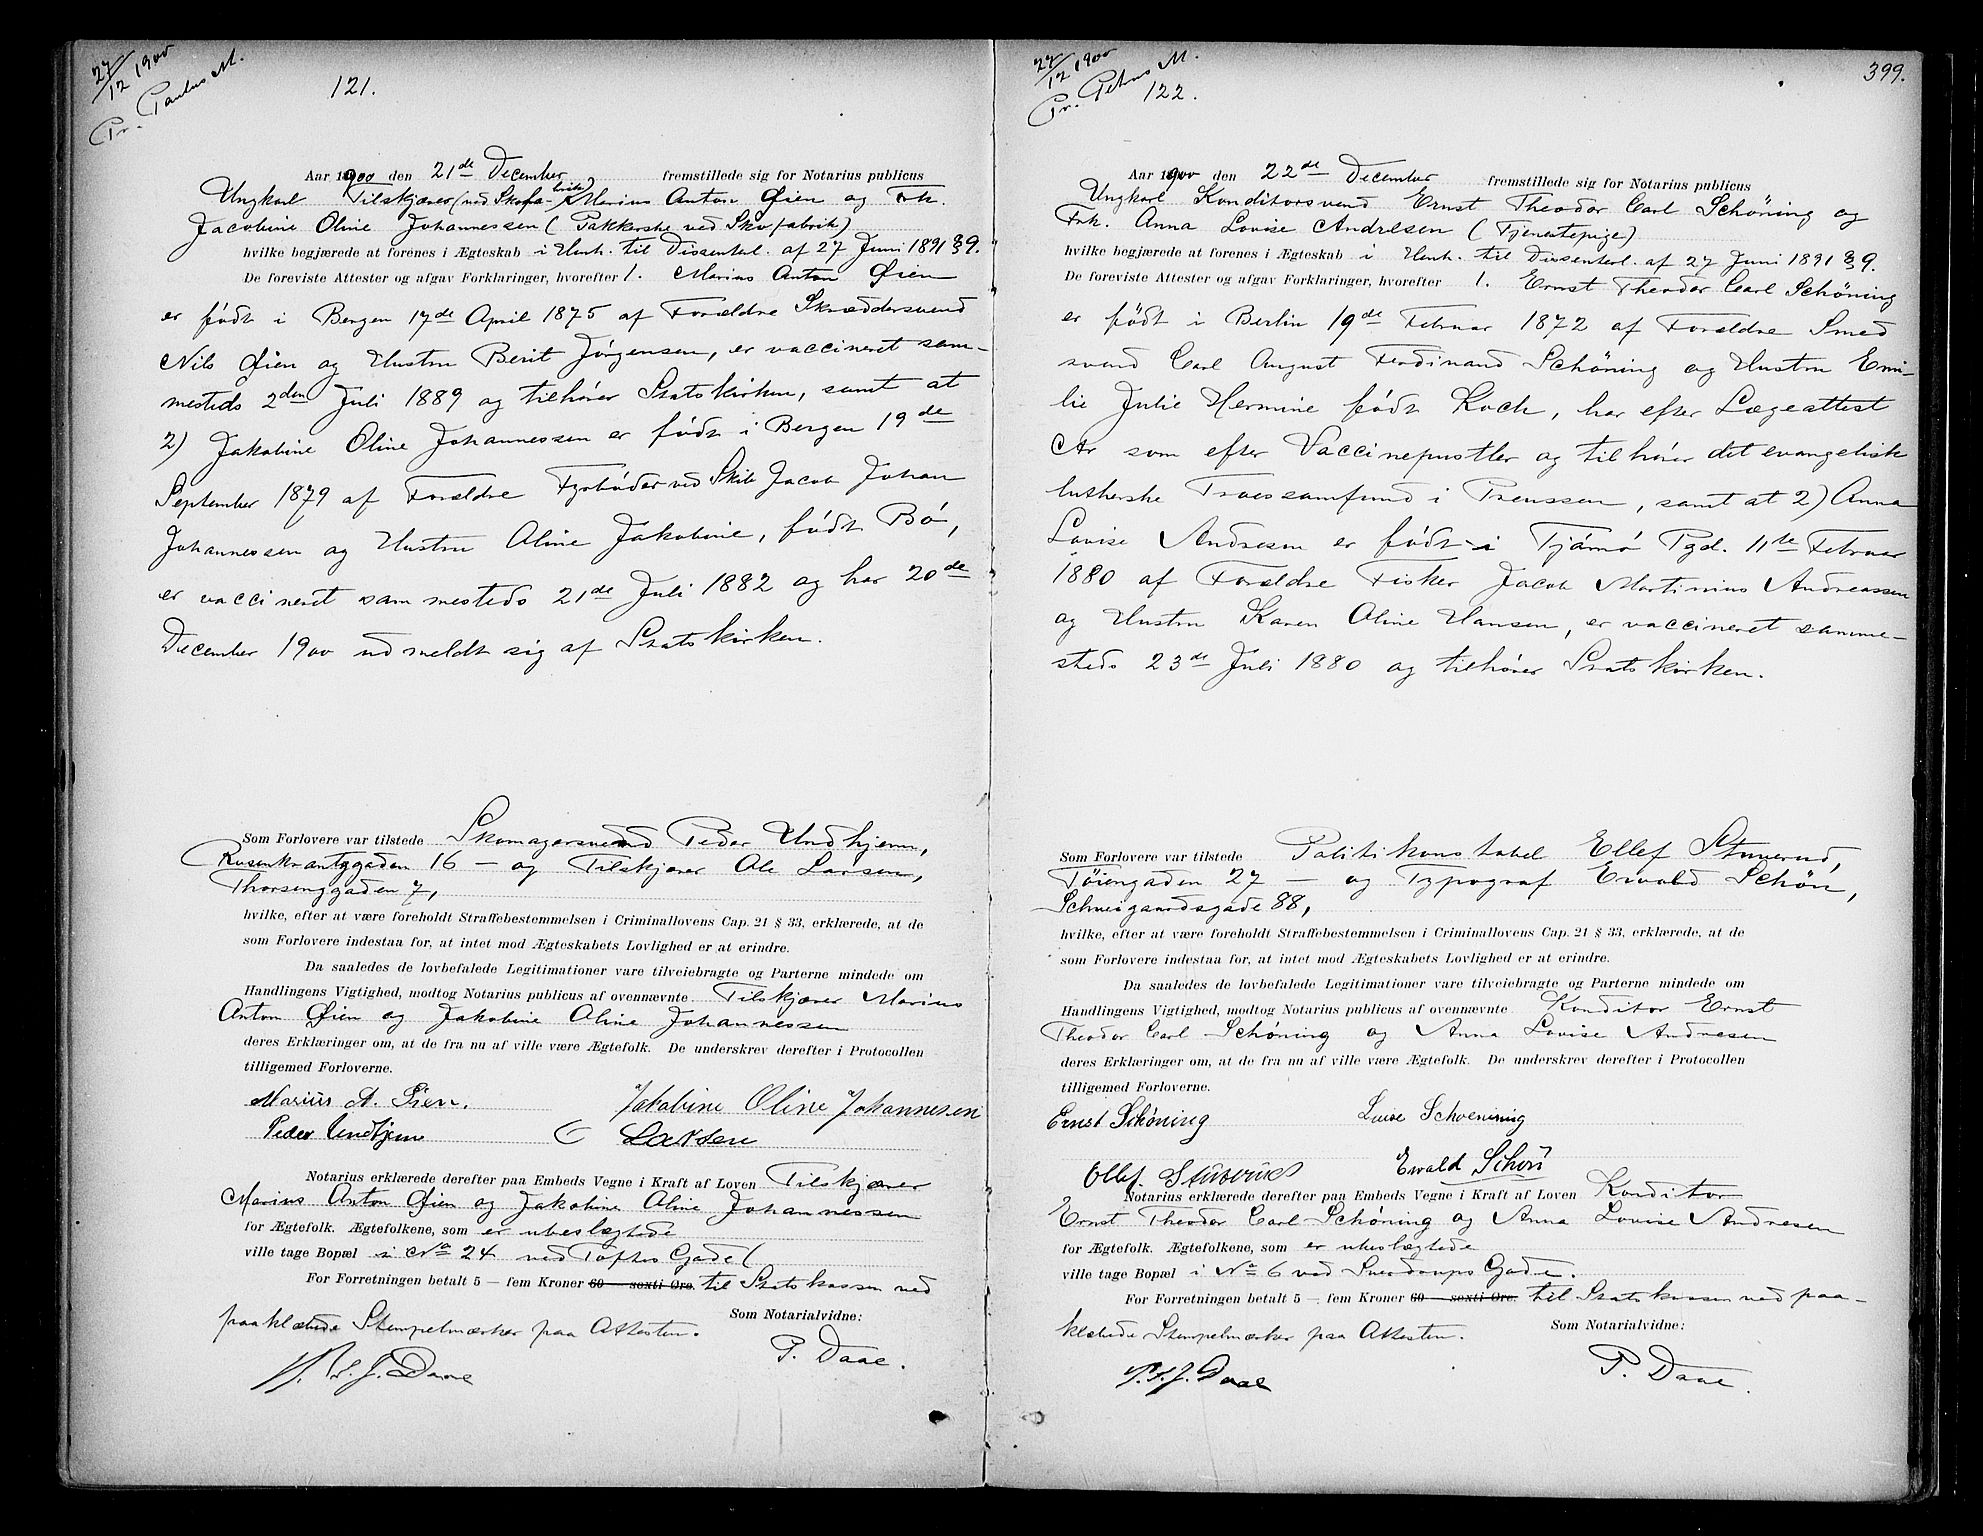 27/12 1900
Pr. Paulus M.
121.
Aar 1900 den 21de December fremstillede sig for Notarius publicus
Ungkarl Tilskjærer (ved Skofabrik) Marius Anton Øien og Frk.
Jacobine Oline Johannessen (Pakkerske ved Skofabrik)
hvilke begjærede at forenes i Ægteskab i Henh. til Dissenterl. af 27 Juni 1891 § 9.
De foreviste Attester og afgav Forklaringer, hvorefter 1. Marius Anton Øien
er født i Bergen 17de April 1875 af Forældre Skræddersvend
Nils Øien og Hustru Berit Jørgensen, er vaccineret sam-
mesteds 2den Juli 1889 og tilhører Statskirken, samt at
2) Jakobine Oline Johannessen er født i Bergen 19de
September 1879 af Forældre Fyrbøder ved Skib Jacob Johan
Johannessen og Hustru Aline Jakobine, født Bø,
er vaccineret sammesteds 21de Juli 1882 og har 20de
December 1900 udmeldt sig af Statskirken.
Som Forlovere var tilstede Skomagersvend Peder Undhjem,
Rosenkrantzgaden 16 — og Tilskjærer Ole Larsen,
Thorsenggaden 7,
hvilke, efter at være foreholdt Straffebestemmelsen i Criminallovens Cap. 21 § 33, erklærede, at de
som Forlovere indestaa for, at intet mod Ægteskabets Lovlighed er at erindre.
Da saaledes de lovbefalede Legitimationer vare tilveiebragte og Parterne mindede om
Handlingens Vigtighed, modtog Notarius publicus af ovennævnte Tilskjærer Marius
Anton Øien og Jakobine Oline Johannessen
deres Erklæringer om, at de fra nu af ville være Ægtefolk. De underskrev derefter i Protocollen
tilligemed Forloverne.
Marius A. Øien. Jakobine Oline Johannesen
Peder Undhjem O Larsen
Notarius erklærede derefter paa Embeds Vegne i Kraft af Loven Tilskjærer
Marius Anton Øien og Jakobine Oline Johannessen
for Ægtefolk. Ægtefolkene, som er ubeslægtede
ville tage Bopæl i No 24 ved Toftes Gade
For Forretningen betalt 5 — fem Kroner 60 — sexti Øre. til Statskassen ved
paaklæbede Stempelmærker paa Attesten. Som Notarialvidne:
P. Daae.
Daae
27/12 1900
Pr. Petrus M.
122.
399.
Aar 1900 den 22de December fremstillede sig for Notarius publicus
Ungkarl Konditorsvend Ernst Theodor Carl Schöning og
Frk. Anna Lovise Andresen (Tjenestepige)
hvilke begjærede at forenes i Ægteskab i Henh. til Dissenterl. af 27 Juni 1891 § 9.
De foreviste Attester og afgav Forklaringer, hvorefter 1. Ernst Theodor Carl Schöning
er født i Berlin 19de Februar 1872 af Forældre Smed
svend Carl August Ferdinand Schöning og Hustru Emi-
lie Julie Hermine født Koch, har efter Lægeattest
Ar som efter Vaccinepustler og tilhører det evangelisk
lutherske Troessamfund i Preussen, samt at 2) Anna
Lovise Andresen er født i Tjømø Pgd. 11te Februar
1880 af Forældre Fisker Jacob Martinius Andreassen
og Hustru Karen Oline Hansen, er vaccineret samme-
steds 23de Juli 1880 og tilhører Statskirken.
Som Forlovere var tilstede Politikonstabel Ellef Stuverud,
Tøiengaden 27 — og Typograf Ewald Schön,
Schweigaardsgade 88,
hvilke, efter at være foreholdt Straffebestemmelsen i Criminallovens Cap. 21 § 33, erklærede, at de
som Forlovere indestaa for, at intet mod Ægteskabets Lovlighed er at erindre.
Da saaledes de lovbefalede Legitimationer vare tilveiebragte og Parterne mindede om
Handlingens Vigtighed, modtog Notarius publicus af ovennævnte Konditor Ernst
Theodor Carl Schöning og Anna Lovise Andresen
deres Erklæringer om, at de fra nu af ville være Ægtefolk. De underskrev derefter i Protocollen
tilligemed Forloverne.
Ernst Schöning Luise Schoening
Ellef Stuverud Ewald Schön
Notarius erklærede derefter paa Embeds Vegne i Kraft af Loven Konditor
Ernst Theodor Carl Schöning og Anna Lovise Andresen
for Ægtefolk. Ægtefolkene, som er ubeslægtede
ville tage Bopæl i No 6 ved Sverdrups Gade.
For Forretningen betalt 5 — fem Kroner 60 — sexti Øre. til Statskassen ved paa-
klæbede Stempelmærker paa Attesten. Som Notarialvidne:
P. Daae.
Daae